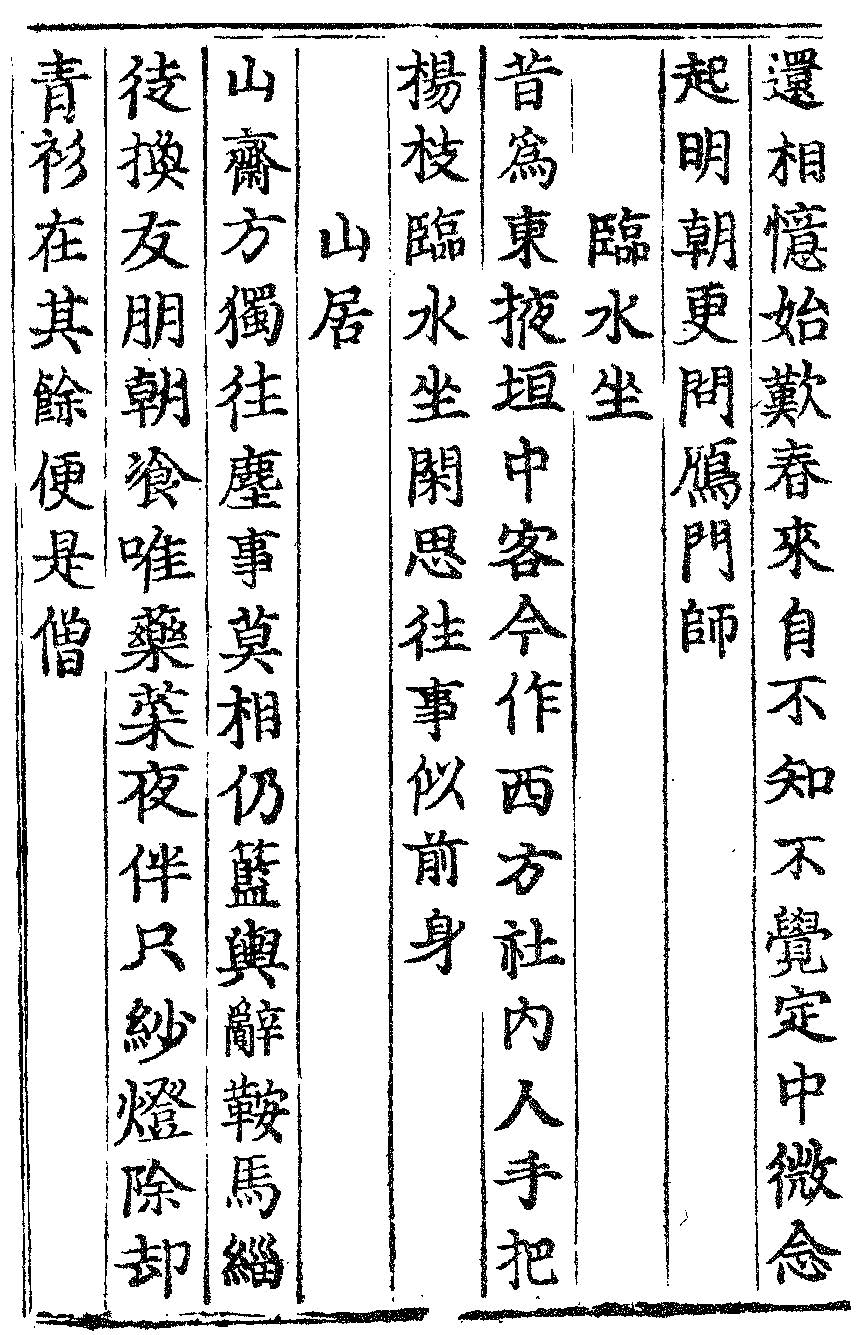 還相憶始歎春來自不知不覺定中微念
起明朝更問鴈門師
臨水坐
昔爲東掖垣中客今作西方社內人手把
楊枝臨水坐閑思往事似前身
山居
山齋方獨往塵事莫相仍籃輿辭鞍馬緇
徒換友朋朝飡唯藥菜夜伴只紗燈除却
青衫在其餘便是僧